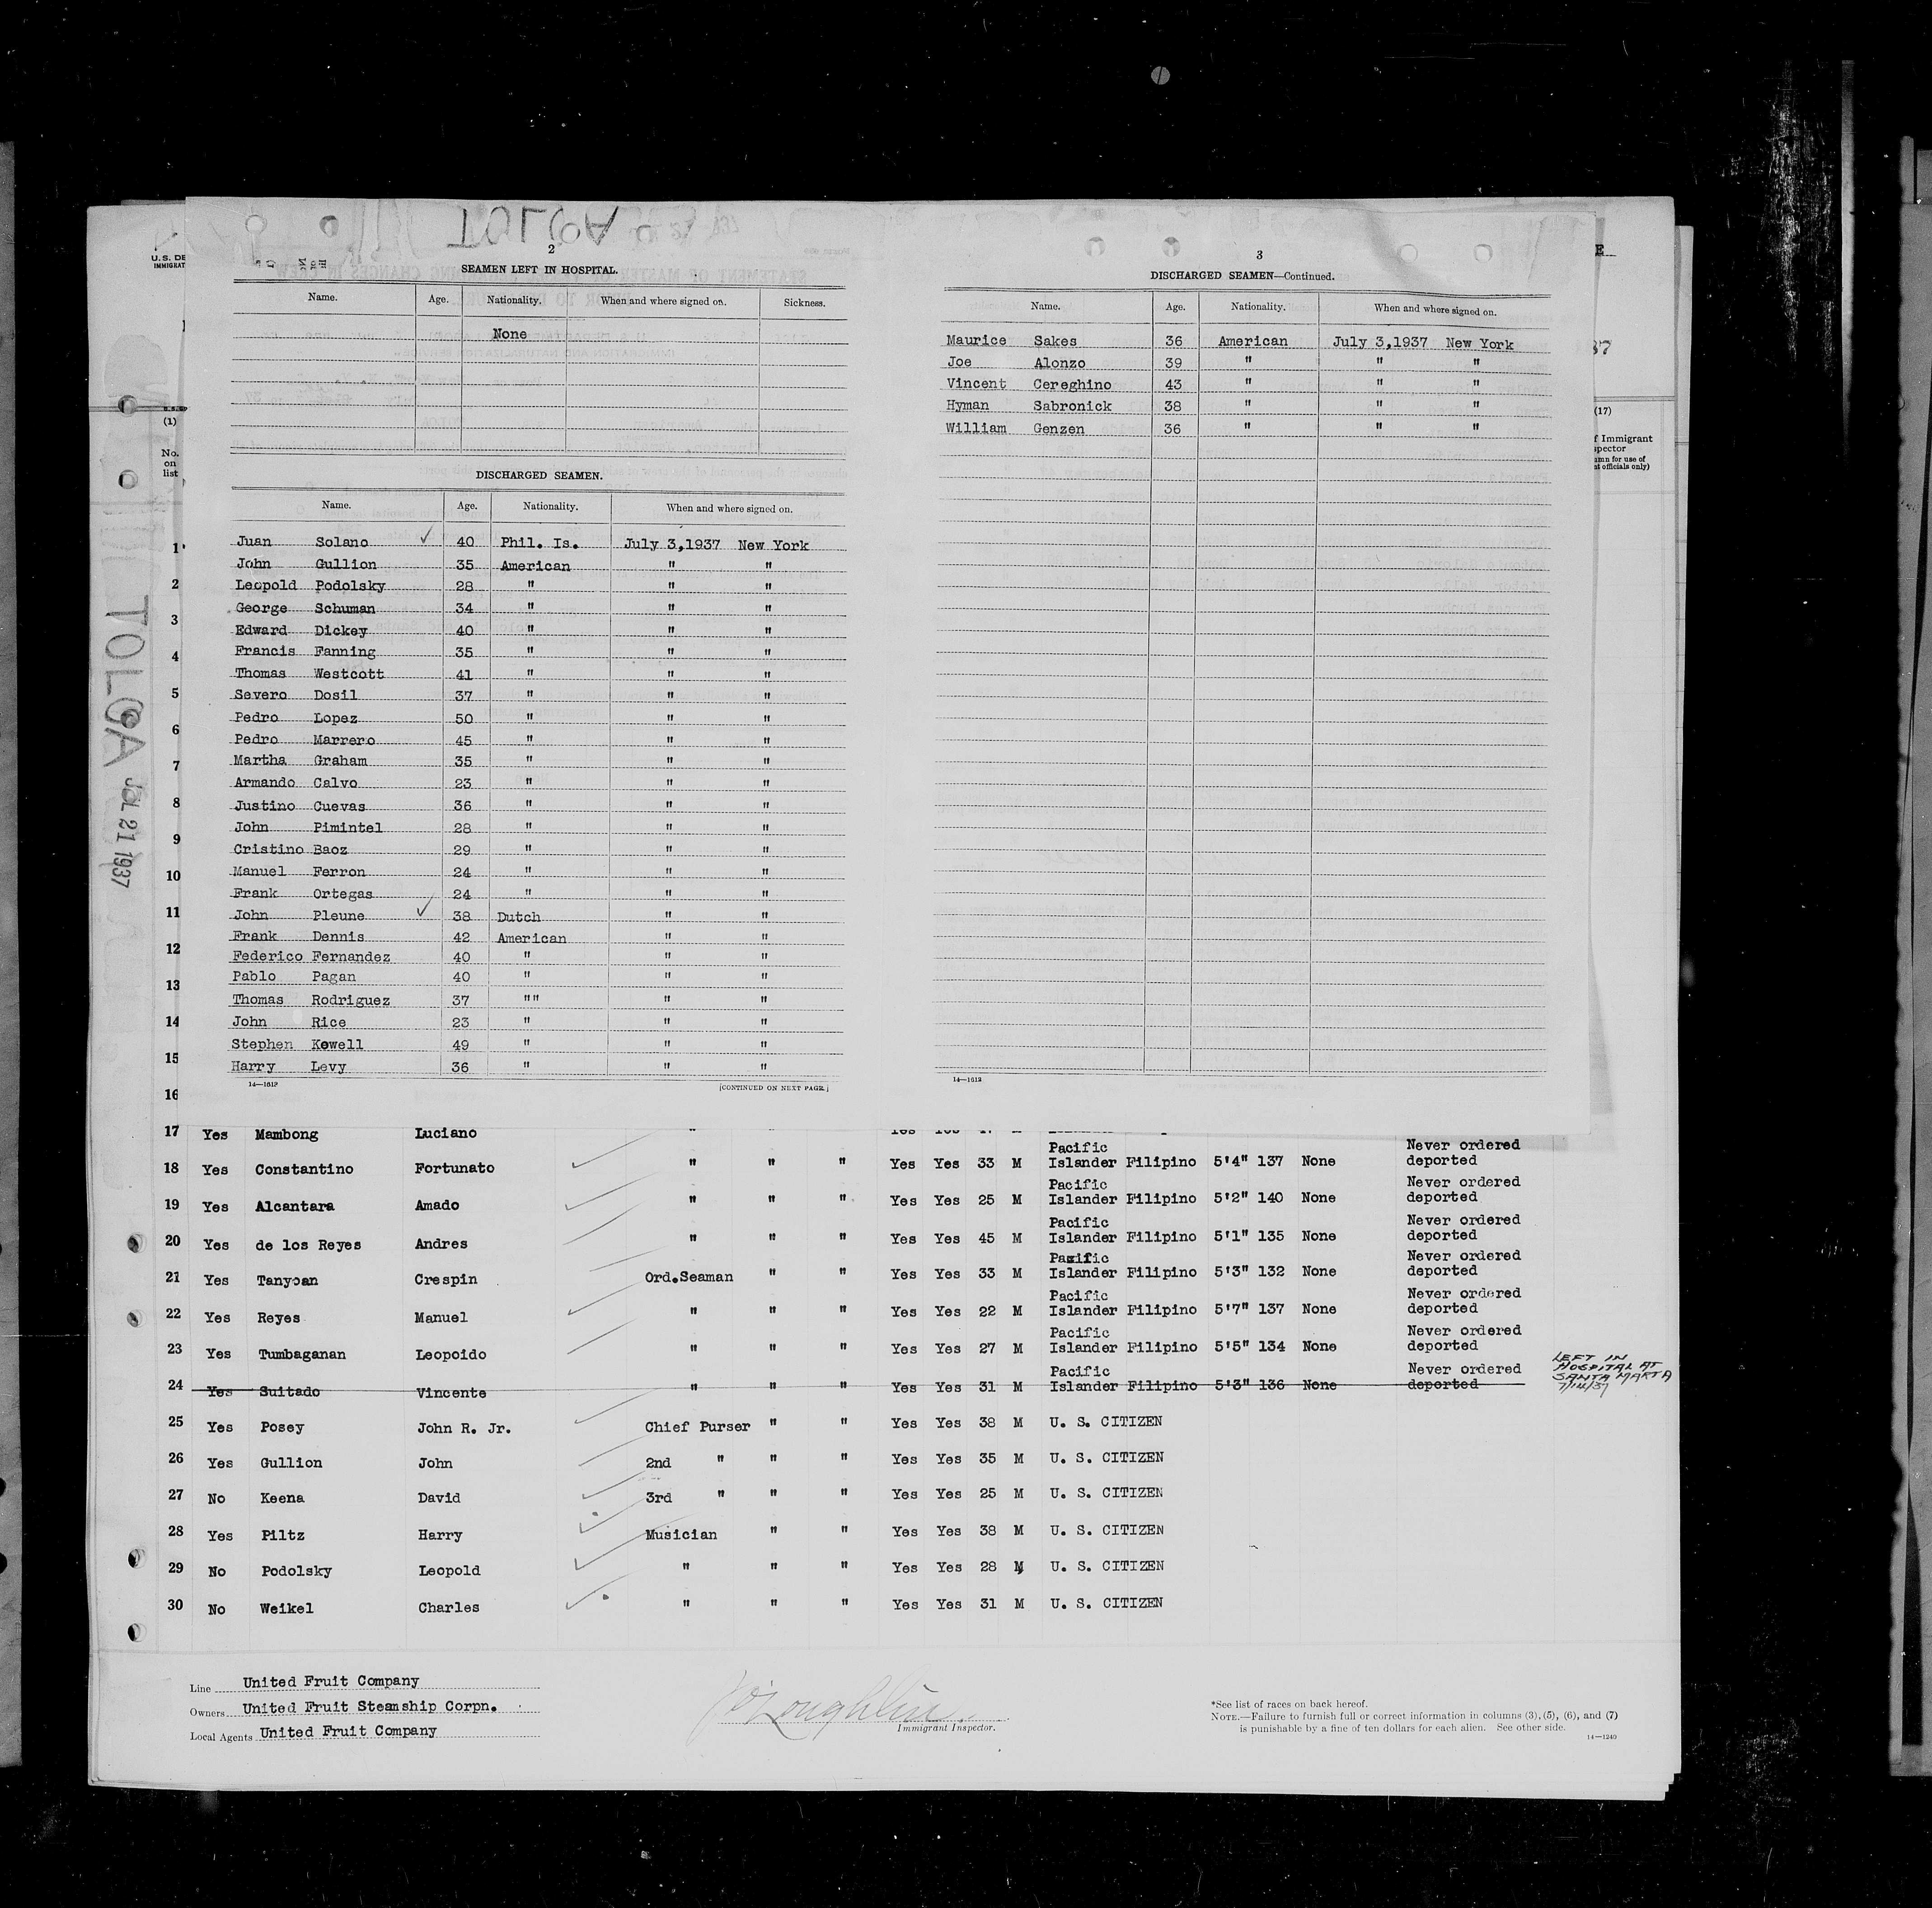 TOLOA
U. S. DE
IMMIGRAT
2
SEAMEN LEFT IN HOSPITAL.
Name. Age. Nationality. When and where signed on. Sickness.
None
DISCHARGED SEAMEN.
Name. Age. Nationality. When and where signed on.
Juan Solano 40 Phil. Is. July 3,1937 New York
John Gullion 35 American " "
Leopold Podolsky 28 " " "
George Schuman 34 " " "
Edward Dickey 40 " " "
Francis Fanning 35 " " "
Thomas Westcott 41 " " "
Severo Dosil 37 " " "
Pedro Lopez 50 " " "
Pedro Marrero 45 " " "
Martha Graham 35 " " "
Armando Calvo 23 " " "
Justino Cuevas 36 " " "
John Pimintel 28 " " "
Cristino Baoz 29 " " "
Manuel Ferron 24 " " "
Frank Ortegas 24 " " "
John Pleune 38 Dutch " "
Frank Dennis 42 American " "
Federico Fernandez 40 " " "
Pablo Pagan 40 " " "
Thomas Rodriguez 37 "" " "
John Rice 23 " " "
Stephen Kewell 49 " " "
Harry Levy 36 " " "
14—1612 [CONTINUED ON NEXT PAGE.]
3
DISCHARGED SEAMEN—Continued.
Name. Age. Nationality. When and where signed on.
Maurice Sakes 36 American July 3,1937 New York
Joe Alonzo 39 " " "
Vincent Cereghino 43 " " "
Hyman Sabronick 38 " " "
William Genzen 36 " " "
14—1612
E
37
(17)
f Immigrant
spector
umn for use of
nt officials only)
(1)
No.
on
list
1
2
3
4
5
6
7
8
9
10
11
12
13
14
15
16
TOLOA
JUL 21 1937
17 Yes Mambong Luciano
18 Yes Constantino Fortunato " " " Yes Yes 33 M Pacific Islander Filipino 5'4" 137 None Never ordered deported
19 Yes Alcantara Amado " " " Yes Yes 25 M Pacific Islander Filipino 5'2" 140 None Never ordered deported
20 Yes de los Reyes Andres " " " Yes Yes 45 M Pacific Islander Filipino 5'1" 135 None Never ordered deported
21 Yes Tanyoan Crespin Ord.Seaman " " Yes Yes 33 M Pacific Islander Filipino 5'3" 132 None Never ordered deported
22 Yes Reyes Manuel " " " Yes Yes 22 M Pacific Islander Filipino 5'7" 137 None Never ordered deported
23 Yes Tumbaganan Leopoido " " " Yes Yes 27 M Pacific Islander Filipino 5'5" 134 None Never ordered deported
24 Yes Suitado Vincente " " " Yes Yes 31 M Pacific Islander Filipino 5'3" 136 None Never ordered deported
LEFT IN
HOSPITAL AT
SANTA MARTA
7/14/37
25 Yes Posey John R. Jr. Chief Purser " " Yes Yes 38 M U. S. CITIZEN
26 Yes Gullion John 2nd " " " Yes Yes 35 M U. S. CITIZEN
27 No Keena David 3rd " " " Yes Yes 25 M U. S. CITIZEN
28 Yes Piltz Harry Musician " " Yes Yes 38 M U. S. CITIZEN
29 No Podolsky Leopold " " " Yes Yes 28 M U. S. CITIZEN
30 No Weikel Charles " " " Yes Yes 31 M U. S. CITIZEN
Line United Fruit Company
Owners United Fruit Steamship Corpn.
Local Agents United Fruit Company
O'Loughlin
Immigrant Inspector.
*See list of races on back hereof.
NOTE.—Failure to furnish full or correct information in columns (3), (5), (6), and (7)
is punishable by a fine of ten dollars for each alien. See other side.
14—1240